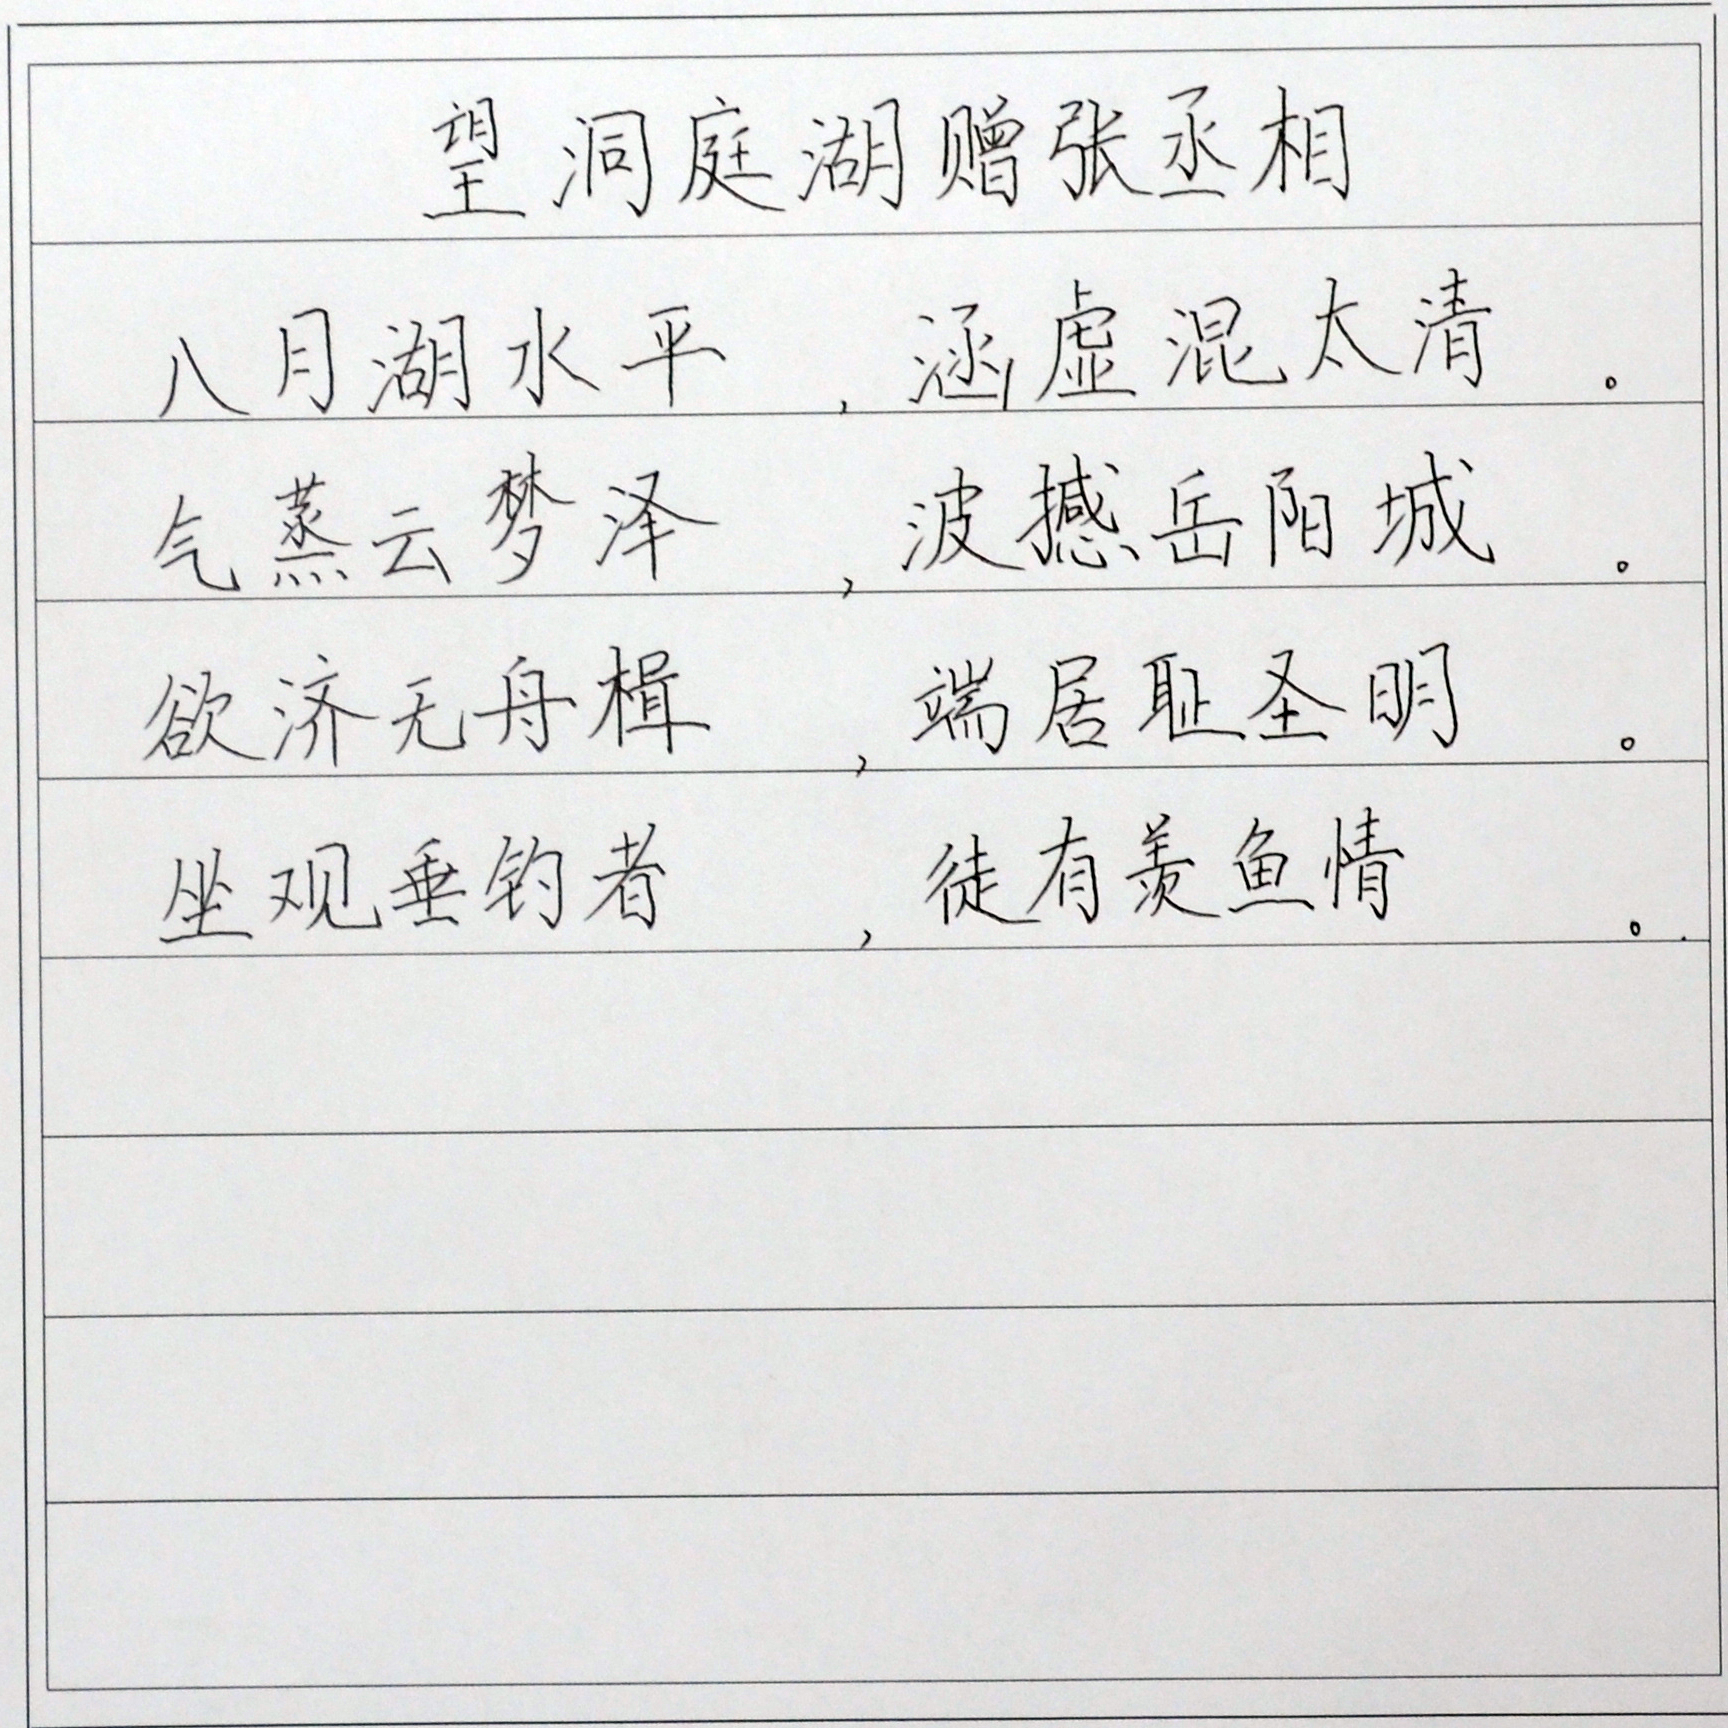 望洞庭湖赠张丞相
八月湖水平，涵虚混太清。
气蒸云梦泽，波撼岳阳城。
欲济无舟楫，端居耻圣明。
坐观垂钓者，徒有羡鱼情。